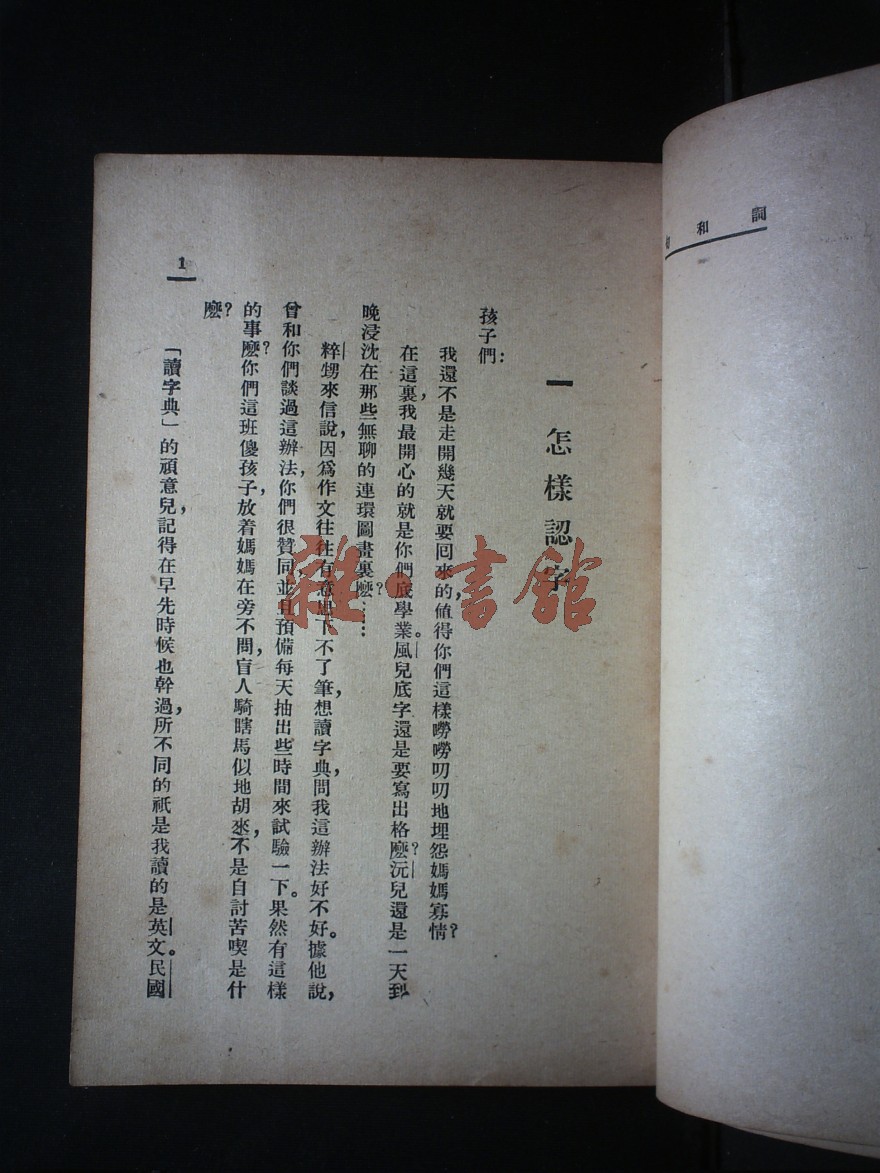 詞和
一 怎樣認字
孩子們：
我還不是走開幾天就要回來的，値得你們這樣嘮嘮叨叨地埋怨媽媽寡情？
在這裏，我最開心的就是你們底學業。風兒底字還是要寫出格麽？沅兒還是一天到
晚浸沈在那些無聊的連環圖畫裏麽？……
粹甥來信說，因爲作文往往有意思下不了筆，想讀字典，問我這辦法好不好。據他說，
曾和你們談過這辦法，你們很贊同，並且預備每天抽出些時間來試驗一下。果然有這樣
的事麽？你們這班傻孩子，放着媽媽在旁不問，盲人騎瞎馬似地胡來，不是自討苦喫是什
麽？
「讀字典」的頑意兒，記得在早先時候也幹過，所不同的祇是我讀的是英文。民國
1
雜·書館